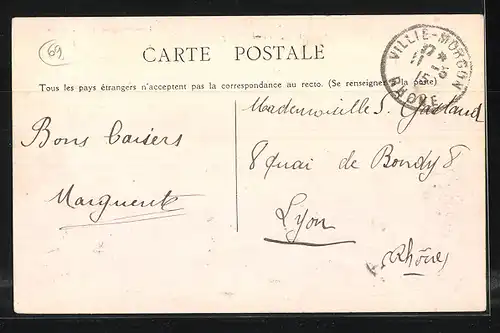 69
CARTE POSTALE
Tous les pays étrangers n'acceptent pas la correspondance au recto. (Se renseigner à la poste)
VILLIÉ-MORGON
RHÔNE
Mademoiselle S.
Bons Baisers
8 Quai de Bondy 8
Marguerite
Lyon
Rhône